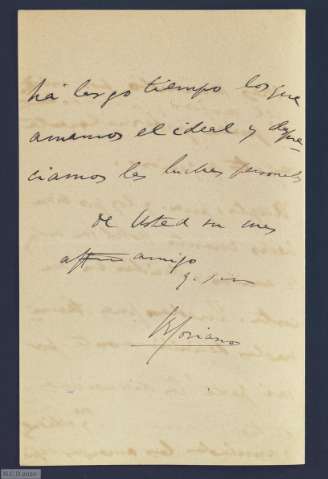 há largo tiempo los que
amamos el ideal y depre-
ciamos las luchas personales
de Usted su mas
affmo amigo
R Soriano